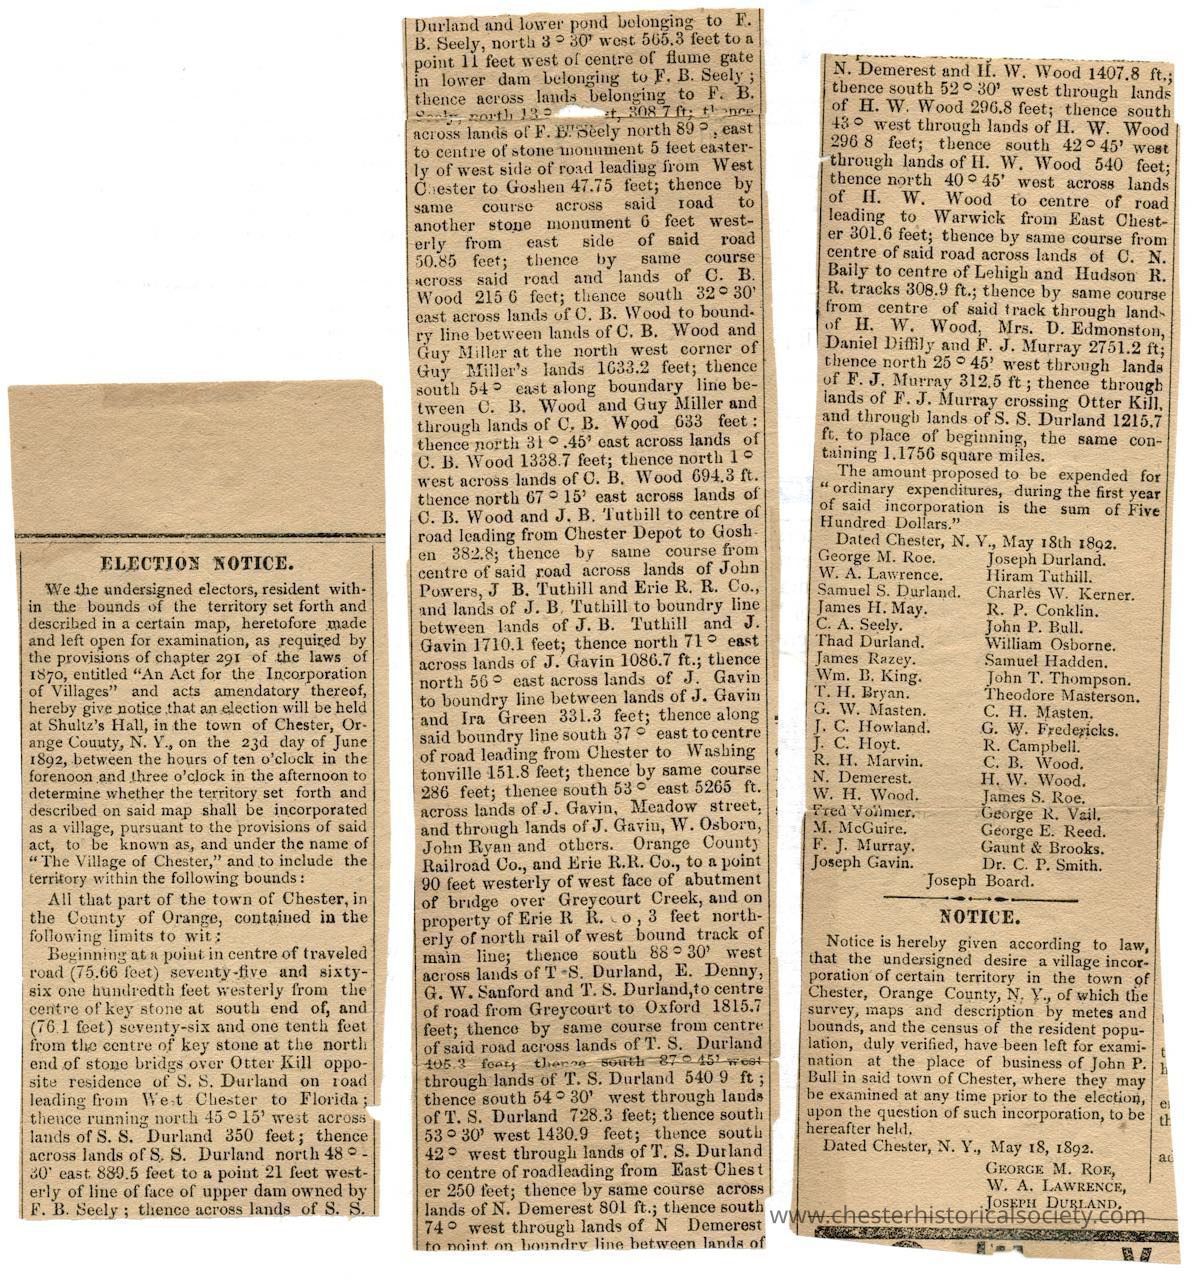 ELECTION NOTICE.
We the undersigned electors, resident with-
in the bounds of the territory set forth and
described in a certain map, heretofore made
and left open for examination, as required by
the provisions of chapter 291 of the laws of
1870, entitled "An Act for the Incorporation
of Villages" and acts amendatory thereof,
hereby give notice that an election will be held
at Shultz's Hall, in the town of Chester, Or-
ange County, N. Y., on the 23d day of June
1892, between the hours of ten o'clock in the
forenoon and three o'clock in the afternoon to
determine whether the territory set forth and
described on said map shall be incorporated
as a village, pursuant to the provisions of said
act, to be known as, and under the name of
"The Village of Chester," and to include the
territory within the following bounds :
All that part of the town of Chester, in
the County of Orange, contained in the
following limits to wit;
Beginning at a point in centre of traveled
road (75.66 feet) seventy-five and sixty-
six one hundredth feet westerly from the
centre of key stone at south end of, and
(76.1 feet) seventy-six and one tenth feet
from the centre of key stone at the north
end of stone bridgs over Otter Kill oppo-
site residence of S. S. Durland on road
leading from West Chester to Florida;
thence running north 45° 15' west across
lands of S. S. Durland 350 feet; thence
across lands of S. S. Durland north 48°-
30' east 889.5 feet to a point 21 feet west-
erly of line of face of upper dam owned by
F. B. Seely; thence across lands of S. S.
Durland and lower pond belonging to F.
B. Seely, north 3° 30' west 565.3 feet to a
point 11 feet west of centre of flume gate
in lower dam belonging to F. B. Seely;
thence across lands belonging to F. B.
Seely, north 13° 308 7 ft; thence
across lands of F. B. Seely north 89°, east
to centre of stone monument 5 feet easter-
ly of west side of road leading from West
Chester to Goshen 47.75 feet; thence by
same course across said road to
another stone monument 6 feet west-
erly from east side of said road
50.85 feet; thence by same course
across said road and lands of C. B.
Wood 215 6 feet; thence south 32° 30'
east across lands of C. B. Wood to bound-
ry line between lands of C. B. Wood and
Guy Miller at the north west corner of
Guy Miller's lands 1633.2 feet; thence
south 54° east along boundary line be-
tween C. B. Wood and Guy Miller and
through lands of C. B. Wood 633 feet:
thence north 31°.45' east across lands of
C. B. Wood 1338.7 feet; thence north 1°
west across lands of C. B. Wood 694.3 ft.
thence north 67° 15' east across lands of
C. B. Wood and J. B. Tuthill to centre of
road leading from Chester Depot to Gosh-
en 382.8; thence by same course from
centre of said road across lands of John
Powers, J B. Tuthill and Erie R. R. Co.,
and lands of J. B. Tuthill to boundry line
between lands of J. B. Tuthill and J.
Gavin 1710.1 feet; thence north 71° east
across lands of J. Gavin 1086.7 ft.; thence
north 56° east across lands of J. Gavin
to boundry line between lands of J. Gavin
and Ira Green 331.3 feet; thence along
said boundry line south 37° east to centre
of road leading from Chester to Washing
tonville 151.8 feet; thence by same course
286 feet; thence south 53° east 5265 ft.
across lands of J. Gavin, Meadow street,
and through lands of J. Gavin, W. Osborn,
John Ryan and others. Orange County
Railroad Co., and Erie R.R. Co., to a point
90 feet westerly of west face of abutment
of bridge over Greycourt Creek, and on
property of Erie R R. o, 3 feet north-
erly of north rail of west bound track of
main line; thence south 88° 30' west
across lands of T S. Durland, E. Denny,
G. W. Sanford and T. S. Durland, to centre
of road from Greycourt to Oxford 1815.7
feet; thence by same course from centre
of said road across lands of T. S. Durland
405.3 feet; thence south 87° 45' west
through lands of T. S. Durland 540 9 ft;
thence south 54° 30' west through lands
of T. S. Durland 728.3 feet; thence south
53° 30' west 1430.9 feet; thence south
42° west through lands of T. S. Durland
to centre of roadleading from East Chest
er 250 feet; thence by same course across
lands of N. Demerest 801 ft.; thence south
74° west through lands of N Demerest
to point on boundry line between lands of
N. Demerest and H. W. Wood 1407.8 ft.;
thence south 52° 30' west through lands
of H. W. Wood 296.8 feet; thence south
43° west through lands of H. W. Wood
296 8 feet; thence south 42° 45' west
through lands of H. W. Wood 540 feet;
thence north 40° 45' west across lands
of H. W. Wood to centre of road
leading to Warwick from East Chest-
er 301.6 feet; thence by same course from
centre of said road across lands of C. N.
Baily to centre of Lehigh and Hudson R.
R. tracks 308.9 ft.; thence by same course
from centre of said track through lands
of H. W. Wood, Mrs. D. Edmonston,
Daniel Diffily and F. J. Murray 2751.2 ft;
thence north 25° 45' west through lands
of F. J. Murray 312.5 ft; thence through
lands of F. J. Murray crossing Otter Kill,
and through lands of S. S. Durland 1215.7
ft. to place of beginning, the same con-
taining 1.1756 square miles.
The amount proposed to be expended for
"ordinary expenditures, during the first year
of said incorporation is the sum of Five
Hundred Dollars."
Dated Chester, N. Y., May 18th 1892.
George M. Roe. Joseph Durland.
W. A. Lawrence. Hiram Tuthill.
Samuel S. Durland. Charles W. Kerner.
James H. May. R. P. Conklin.
C. A. Seely. John P. Bull.
Thad Durland. William Osborne.
James Razey. Samuel Hadden.
Wm. B. King. John T. Thompson.
T. H. Bryan. Theodore Masterson.
G. W. Masten. C. H. Masten.
J. C. Howland. G. W. Fredericks.
J. C. Hoyt. R. Campbell.
R. H. Marvin. C. B. Wood.
N. Demerest. H. W. Wood.
W. H. Wood. James S. Roe.
Fred Vollmer. George R. Vail.
M. McGuire. George E. Reed.
F. J. Murray. Gaunt & Brooks.
Joseph Gavin. Dr. C. P. Smith.
Joseph Board.
NOTICE.
Notice is hereby given according to law,
that the undersigned desire a village incor-
poration of certain territory in the town of
Chester, Orange County, N. Y., of which the
survey, maps and description by metes and
bounds, and the census of the resident popu-
lation, duly verified, have been left for exami-
nation at the place of business of John P.
Bull in said town of Chester, where they may
be examined at any time prior to the election,
upon the question of such incorporation, to be
hereafter held.
Dated Chester, N. Y., May 18, 1892.
GEORGE M. ROE,
W. A. LAWRENCE,
JOSEPH DURLAND,
www.chesterhistoricalsociety.com